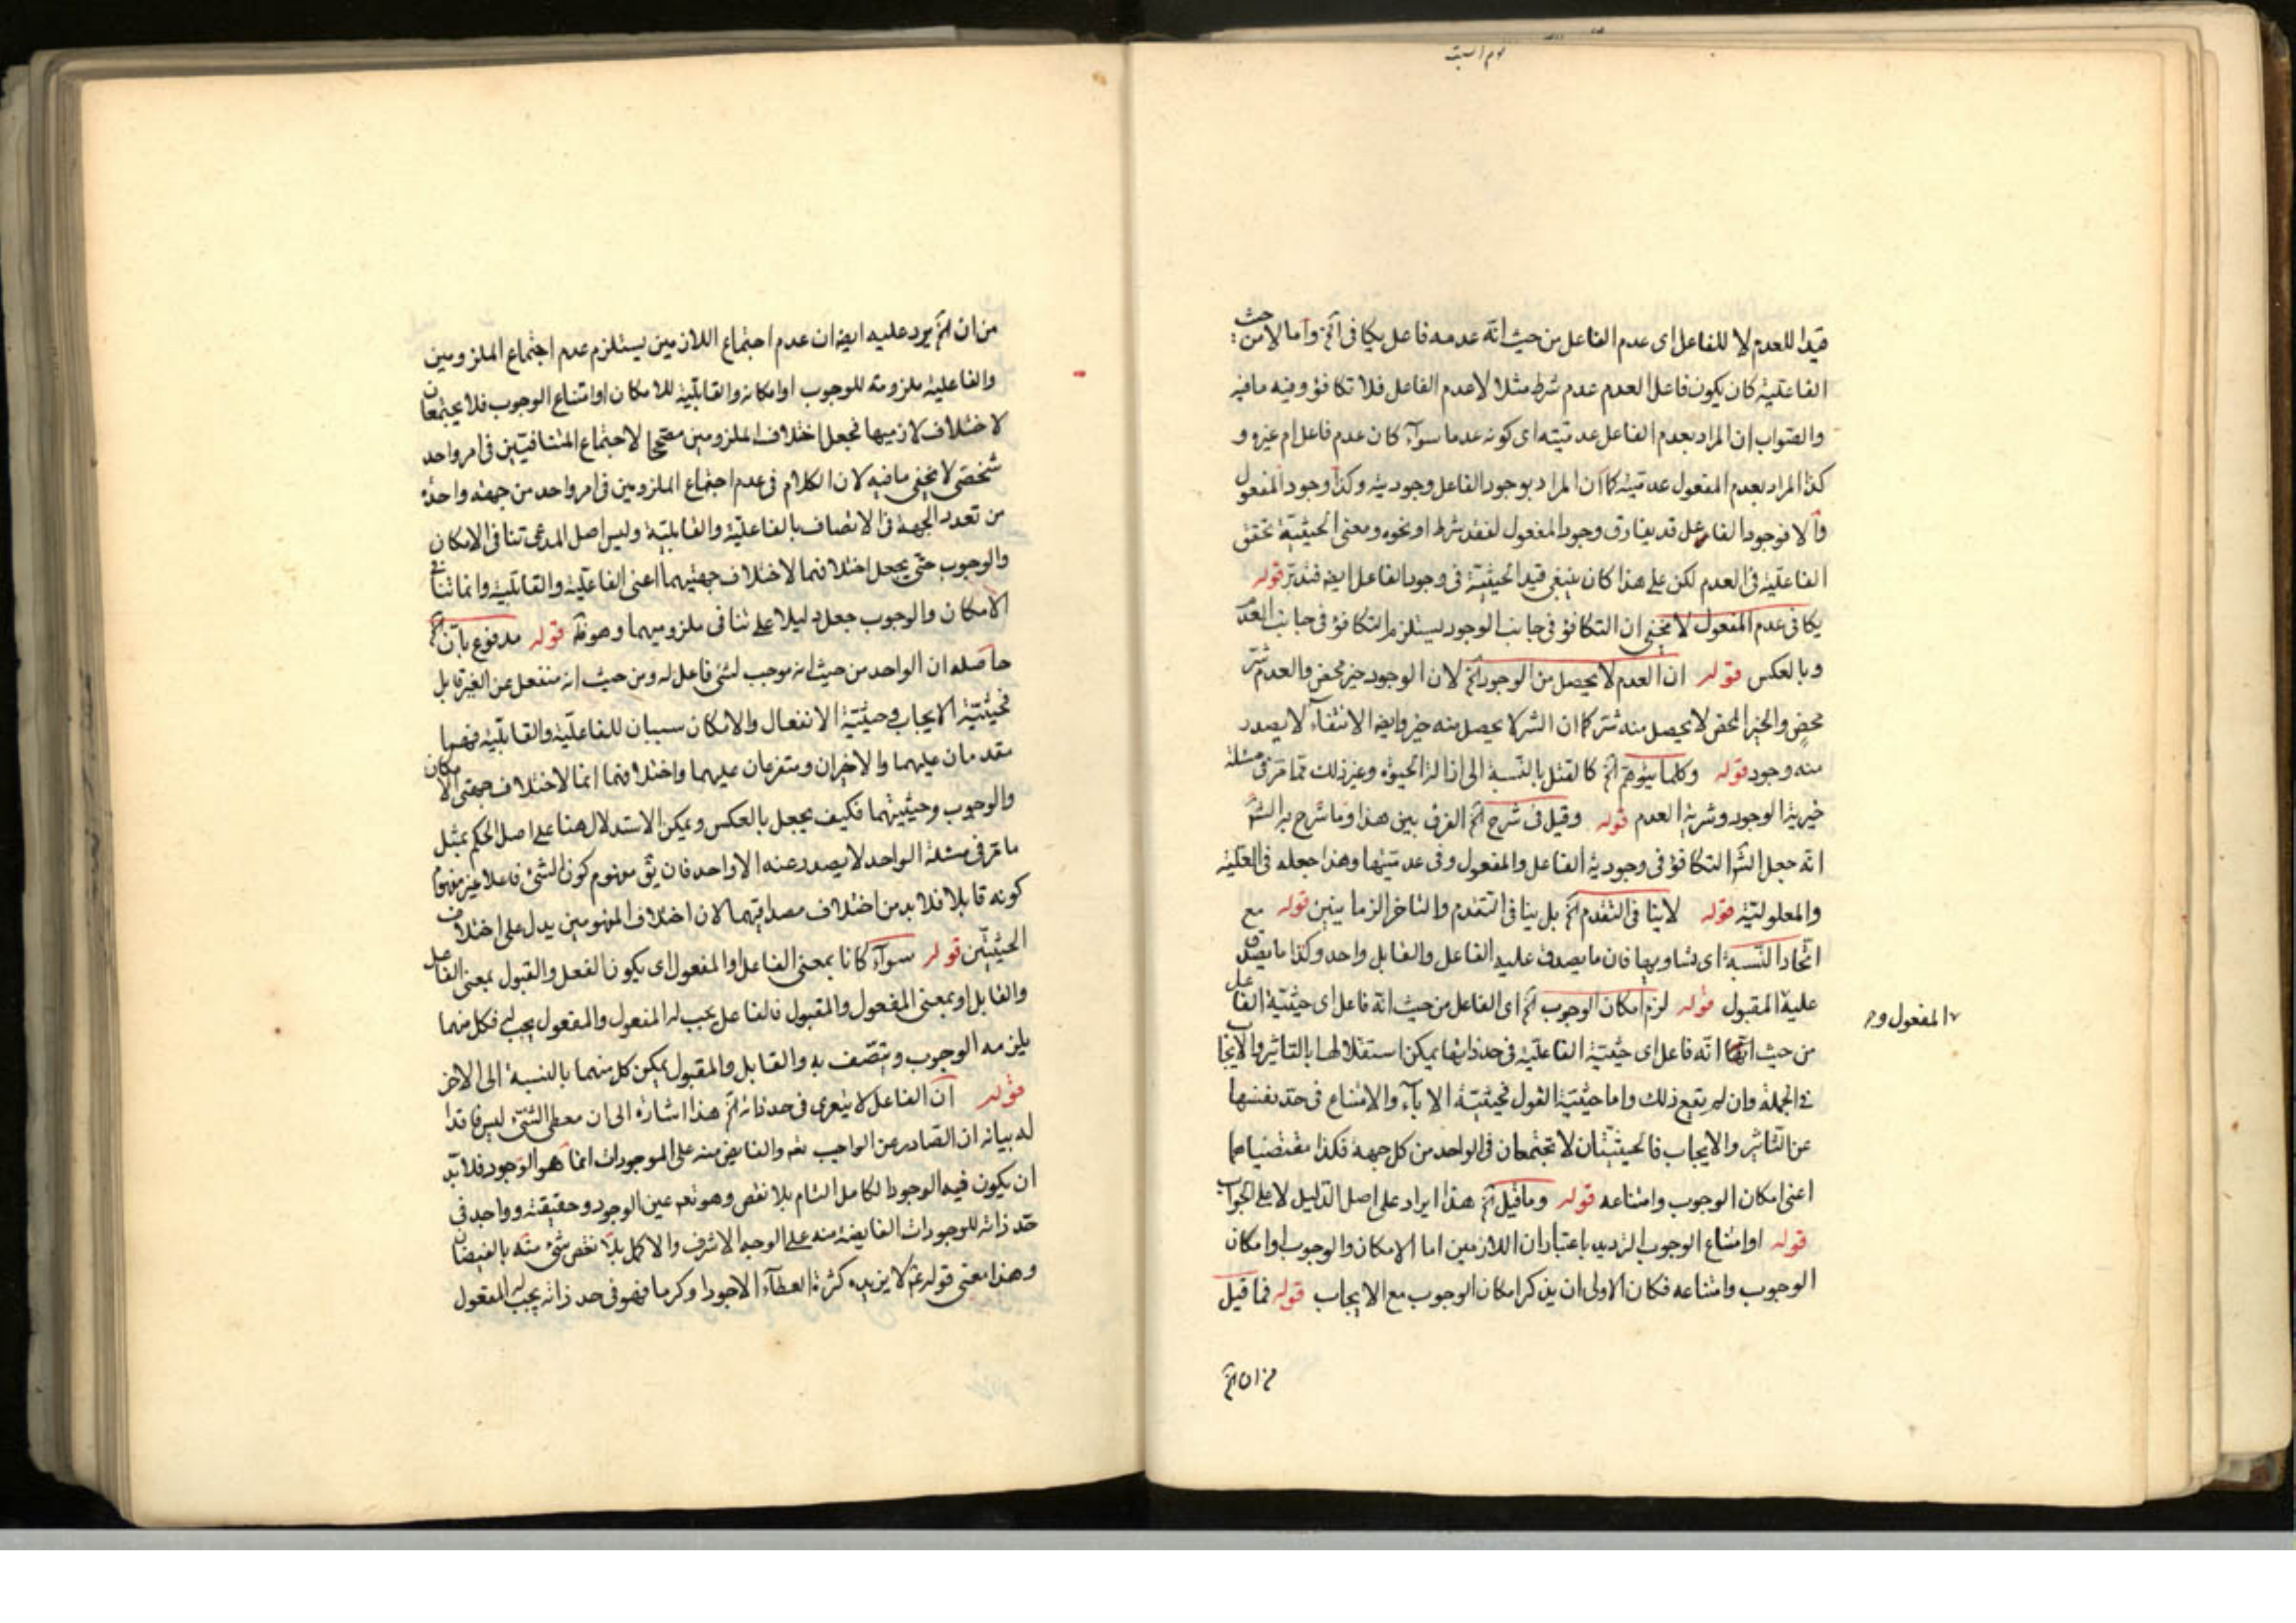 يوم السبت
قيدا للعدم لا للفاعل اى عدم الفاعل من حيث انه عدمه فاعل يكافى آخ واما لا من حيث
الفاعلية كان يكون فاعل العدم عدم شرط مثلا لا عدم الفاعل فلا تكافؤ وفيه ما فيه
والصواب ان المراد بعدم الفاعل عدميته اى كونه عدما سوآء كان عدم فاعل ام غيره و
كذا المراد بعدم المفعول عدميته كما ان المراد بوجود الفاعل وجوديته وكذا وجود المفعول
والا فوجود الفاعل قد يفارق وجود المفعول لفقد شرط او نحوه ومعنى الحيثية تحقق
الفاعلية فى العدم لكن على هذا كان ينبغى قيد الحيثية فى وجود الفاعل ايضا فتدبر قوله
يكافى عدم المفعول لا يخفى ان التكافؤ فى جانب الوجود يستلزم التكافؤ فى جانب العدم
وبالعكس قوله ان العدم لا يحصل من الوجود آخ لان الوجود خير محض والعدم شر
محض والخير المحض لا يحصل منه شر كما ان الشر لا يحصل منه خير وايضا الانتفاء لا يصدر
منه وجود قوله وكلما يتوهم آخ كالقتل بالنسبة الى ازالة الحيوة وغير ذلك مما مر فى مسئلة
خيرية الوجود وشرية العدم قوله وقيل فى شرح آخ الفرق بين هذا وما شرح به الشم
انه جعل الشم التكافؤ فى وجودية الفاعل والمفعول وفى عدميتها وهذا جعله فى العلية
والمعلولية قوله لا ينافى التقدم آخ بل ينافى التقدم والتاخر الزمانيين قوله مع
اتحاد النسبة اى تساويها فان ما يصدق عليه الفاعل والقابل واحد وكذا ما يصدق
عليه المقبول قوله لزم امكان الوجوب آخ اى الفاعل من حيث انه فاعل اى حيثية الفاعل
المفعول و
من حيث انه فاعل اى حيثية الفاعلية فى حد ذاتها يمكن استقلالها بالتاثير والايجاب
فى الجملة وان لم يقع ذلك واما حيثية القبول فحيثية الاباء والامتناع فى حد نفسها
عن التاثير والايجاب فالحيثيتان لا تجتمعان فى الواحد من كل جهة فكذا مقتضياهما
اعنى امكان الوجوب وامتناعه قوله وما قيل آخ هذا ايراد على اصل الدليل لا على الجواب
قوله او امتناع الوجوب الترديد باعتبار ان اللازمين اما الامكان والوجوب او امكان
الوجوب وامتناعه فكان الاولى ان يذكر امكان الوجوب مع الايجاب قوله فما قيل
من ان آخ
من ان آخ يرد عليه ايضا ان عدم اجتماع اللازمين يستلزم عدم اجتماع الملزومين
والفاعلية ملزومة للوجوب او امكانه والقابلية للامكان او امتناع الوجوب فلا يجتمعان
لاختلاف لازميها فجعل اختلاف الملزومين مصححا لاجتماع المتنافيين فى امر واحد
شخصى لا يخفى ما فيه لان الكلام فى عدم اجتماع الملزومين فى امر واحد من جهة واحدة
من تعدد الجهة فى الاتصاف بالفاعلية والقابلية وليس اصل المدعى تنافى الامكان
والوجوب حتى يجعل اختلافهما لاختلاف جهتيهما اعنى الفاعلية والقابلية وانما تنافى
الامكان والوجوب جعل دليلا على تنافى ملزوميهما وهو آخ قوله مدفوع بان آخ
حاصله ان الواحد من حيث انه موجب لشئ فاعل له ومن حيث انه منفعل عن الغير قابل
فحيثية الايجاب وحيثية الانفعال والامكان سببان للفاعلية والقابلية فهما
مقدمان عليهما والاخران متفرعان عليهما واختلافهما انما لاختلاف جهتى الامكان
والوجوب وحيثيتهما فكيف يجعل بالعكس ويمكن الاستدلال هنا على اصل الحكم بمثل
ما مر فى مسئلة الواحد لا يصدر عنه الا واحد فان يق مفهوم كون الشئ فاعلا غير مفهوم
كونه قابلا فلا بد من اختلاف مصداقيهما لان اختلاف المفهومين يدل على اختلاف
الحيثيتين قوله سوآء كانا بمعنى الفاعل او المفعول اى يكون الفعل والقبول بمعنى الفاعل
والقابل او بمعنى المفعول والمقبول فالفاعل يجب له المفعول والمفعول يجب له فكل منهما
يلزمه الوجوب ويتصف به والقابل والمقبول يمكن كل منهما بالنسبة الى الاخر
قوله ان الفاعل لا يتعرى فى حد ذاته آخ هذا اشارة الى ان معطى الشئ ليس فاقدا
له بيانه ان الصادر عن الواجب تعم والفايض منه على الموجودات انما هو الوجود فلا بد
ان يكون فيه الوجود الكامل التام بلا نقص وهو تعم عين الوجود وحقيقته وواجد فى
حد ذاته للوجودات الفايضة منه على الوجه الاشرف والاكمل بلا نقص شئ منه بالفيضان
وهذا معنى قوله عم لا يزيده كثرة العطآء الا جودا وكرما فهو فى حد ذاته يجب له المفعول